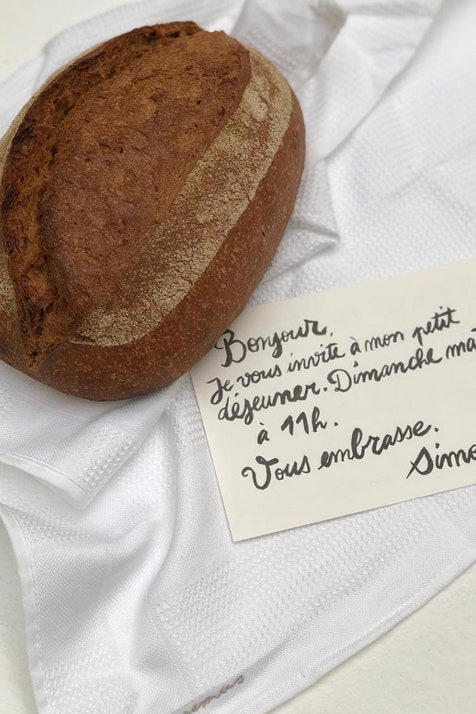 Bonjour,
Je vous invite à mon petit
déjeuner. Dimanche
à 11h.
Vous embrasse.